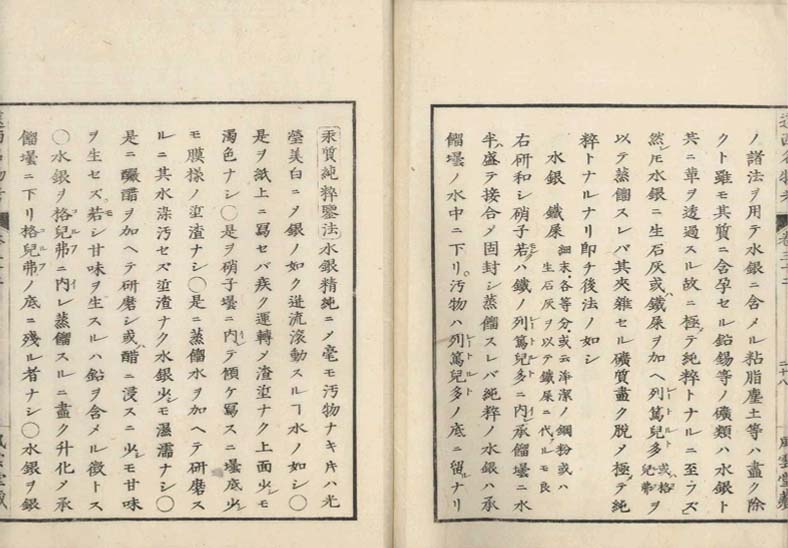 ノ諸法ヲ用テ水銀ニ含メル粘脂塵土等ハ盡ク除
クト雖モ其質ニ含孕セル鉛錫等ノ礦類ハ水銀ト
共ニ革ヲ透過スル故ニ極テ純粹トナルニ至ラズ
然𪜈水銀ニ生石灰或鐵屎ヲ加ヘ列篤兒多レトルト或格兒弗ヲ
以テ蒸餾スレバ其夾雜セル礦質盡ク脫メ極テ純
粹トナルナリ即チ後法ノ如シ
水銀 鐵屎 細末各等分或云淨潔ノ鋼粉或ハ生石灰ヲ以テ鐵屎ニ代ルモ良
右研和シ硝子若ハ鐵ノ列篤兒多レトルトニ内レ承餾壜ニ水
半盛テ接合メ固封シ蒸餾スレバ純粹ノ水銀ハ承
餾壜ノ水中ニ下リ汚物ハ列篤兒多レトルトノ底ニ留ルナリ
二十八
風雲堂藏
汞質純粹鑒法水銀精純ニメ毫モ汚物ナキ𪜈ハ光
瑩美白ニヲ銀ノ如ク迸流滾動スルヿ水ノ如シ〇
是ヲ紙上ニ寫セバ疾ク運轉メ渣滓ナク上面少モ
濁色ナシ〇是ヲ硝子壜ニ内レテ傾ケ寫スニ壜底少
モ膜樣ノ渣滓ナシ〇是ニ蒸餾水ヲ加ヘテ研磨ス
ルニ其水染汚セズ渣滓ナク水銀少モ濕濡ナシ〇
是ニ釅醋ヲ加ヘテ研磨シ或ハ醋ニ浸スニ少モ甘味
ヲ生セズ若シ甘味ヲ生スルハ鉛ヲ含メル徵トス
〇水銀ヲ格兒弗コルフニ内レ蒸餾スルニ盡ク升化メ承
餾壜ニ下リ格兒弗コルフノ底ニ殘ル者ナシ〇水銀ヲ銀